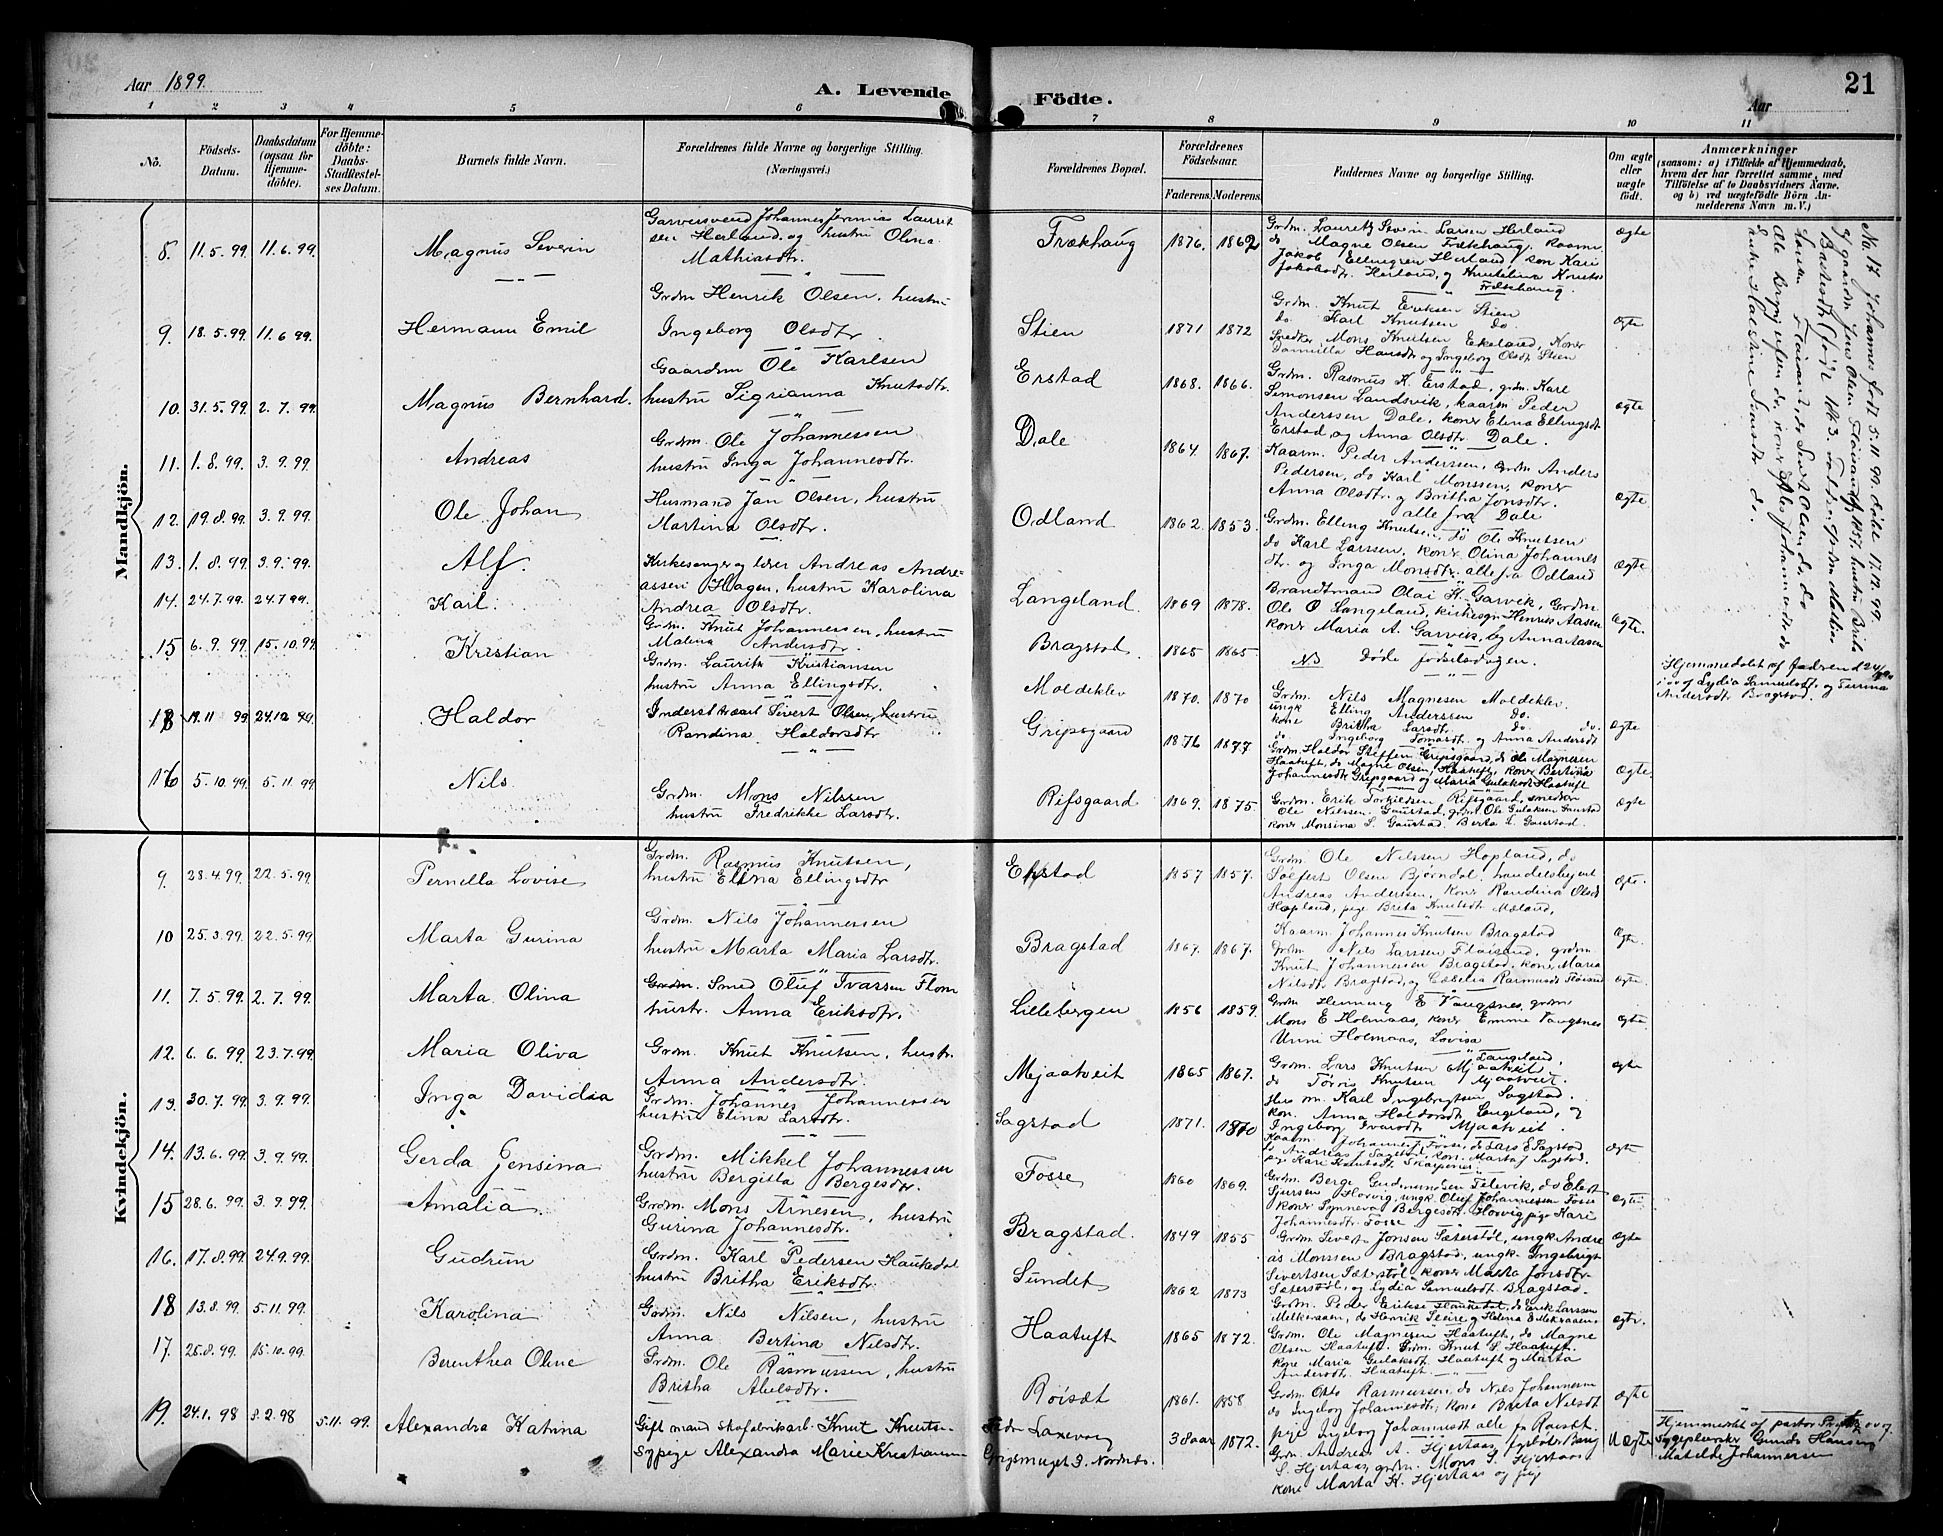 Aar 1899.
A. Levende Födte.
21
Aar
1 2 3 4 5 6 7 8 9 10 11
No.
Födsels-Datum.
Daabsdatum (ogsaa for Hjemme-döbte).
For Hjemme-döbte: Daabs-Stadfæstel-ses Datum.
Barnets fulde Navn.
Forældrenes fulde Navne og borgerlige Stilling. (Næringsvei.)
Forældrenes Bopæl.
Forældrenes Födselsaar.
Faderens. Moderens.
Faddernes Navne og borgerlige Stilling.
Om ægte eller uægte födt.
Anmærkninger
(saasom: a) i Tilfælde af Hjemmedaab,
hvem der har forrettet samme, med
Tilföielse af to Daabsvidners Navne.
og b) ved uægtefödte Börn An-
melderens Navn m. V.)
Mandkjön.
8. 11.5.99 11.6.99 Magnus Severin
Garversvend Johannes Jeremia Laurit
sen Herland, og hustru Olina
Mathiasdtr.
Frækhaug 1876. 1862
Grdm. Lauritz Severin Larsen Herland
do Magne Olsen Frækhaug, kaarm
Jakob Ellingsen Herland, kon Kari
Jakobsdtr. Herland, og Knutelina Knutsd
Frækhaug.
ægte
9. 18.5.99 11.6 99 Hermann Emil
Grdm Henrik Olsen, hustru
Ingeborg Olsdtr.
Stien 1871 1872
Grdm. Knut Eriksen Stien
do Karl Knutsen do.
Snedker Mons Knutsen Ekeland, Koner
Dannilla Hansdtr og Ingeborg Olsdtr Stien
ægte
10. 31.5.99. 2.7.99. Magnus Bernhard.
Gaardm Ole Karlsen
hustru Sigrianna Knutsdtr.
Erstad 1868. 1866.
Grdm. Rasmus K. Erstad, grdm. Karl
Simonsen Landsvik, kaarm Peder
Anderssen Dale, koner Elina Ellingsdt
Erstad, og Anna Olsdtr. Dale.
ægte
11. 1.8.99. 3.9.99. Andreas
Grdm. Ole Johannessen
hustru Inga Johannesdtr.
Dale 1864 1867.
Kaarm. Peder Anderssen, Grdm Anders
Pedersen, do Karl Monssen, koner
Anna Olsdtr. og Britha Jonsdtr.
alle fra Dale
ægte
12. 19.8.99. 3.9.99. Ole Johan
Husmand Jan Olsen, hustru
Martina Olsdtr.
Odland 1862. 1853.
Grdm. Elling Knutsen, do Ole Knutsen
do Karl Larssen, koner Olina Johannes
dtr. og Inga Monsdtr. alle fra Odland
ægte
13. 1.8.99. 3.9.99. Alf
Kirkesanger og lærer Andreas Andre-
assen Hagen, hustru Karolina
Andrea Olsdtr.
Langeland 1869 1878.
Brandtmand Olai K. Garvik, Grdm
Ole O Langeland, kirkesgr. Henrik Aasen
koner Maria A. Garvik, og Anna Aasen
ægte.
14. 24.7.99. 24.7.99. Karl.
Grdm. Knut Johannessen, hustru
Malena Andersdtr.
Bragstad 1865 1865
NB Døde fødselsdagen.
Hjemmedøbt af faderen d 24/7 99
i ov. af Lydia Samuelsdtr. og
Andersdtr. Bragstad.
15 6.9.99 15.10.99 Kristian
Grdm. Laurits Kristiansen
hustru Anna Ellingsdtr.
Moldeklev 1870. 1870
Grdm. Nils Magnesen Moldeklev
ungk Elling Anderssen do.
kone Britha Larsdtr. do. do.
do. Ingeborg Tomasdt. og Anna Andersdt
ægte
18 19.11 99 24.12 99. Haldor
Inderst Sivert Olsen, hustru
Randina Haldorsdtr
Gripsgaard 1876 1877
Grdm. Haldor Steffens Gripsgaard, do Ole Magnesen
Haatuft, do Magne Olsen Haatuft, koner Bertina
Johannesdtr Gripsgaard og Maria Gulaksdt Haatuft
ægte
16 5.10.99. 5.11 99 Nils
Grdm. Mons Nilsen
hustru Fredrikke Larsdtr.
Rifsgaard 1869. 1875.
Grdm. Erik Torkildsen Rifsgaard, smeden
Ole Nilssen Gaustad, grdm. Ole Gulaksen Gaustad
koner Monsina S. Gaustad. Berta L. Gaustad.
ægte
No 17 Johannes født 5.11 99. døbt 17.12.99.
Kvindekjön.
9. 28.4.99. 22.5.99. Pernella Lovise
Grdm. Rasmus Knutsen,
hustru Elina Ellingsdtr
Ekstad 1857 1857.
Grdm. Ole Nilssen Hopland, do
Solfert Olsen Bjørndal, handelsbetjent
Andreas Andersen, koner Randina Olsd
Hopland, pige Brita Knutsdt Mæland,
ægte.
10 25.3.99. 22.5.99. Marta Gurina
Grdm. Nils Johannessen
hustru Marta Maria Larsdtr.
Bragstad 1867. 1867.
Kaarm. Johannes Knutsen Bragstad
Grdm Nils Larssen Fløisand, grdm
Knut Johannessen Bragstad, koner Maria
Nilsdt. Bragstad, og Cæcelia Rasmusdt Fløisand
Ægte
11. 7.5.99. 2.7.99. Marta Olina
Grdm. Smed Oluf Ivarsen Flom
hustr. Anna Eriksdtr.
Lillebergen 1856 1859.
Grdm Henning E Vangsnes, grdm
Mons E Holmaas, koner Emme Vangsnes
Unni Holmaas, Lovisa
Langeland.
ægte
12. 6.6.99. 23.7.99. Maria Oliva
Grdm. Knut Knutsen, hustr.
Anna Andersdtr.
Mjaatveit 1865 1867.
Grdm. Lars Knutsen Mjaatveit
do Tørris Knutsen Mjaatveit.
Hus m. Karl Ingebrigtsen Sagstad.
kon. Anna Haldorsdt Langeland, og
Ingeborg Ivarsdt Mjaatveit.
ægte
13. 30.7.99. 3.9.99. Inga Davidia
Grdm. Johannes Johannessen
hustru Elina Larsdtr.
Sagstad 1871. 1870
Kaarm. Johannes J. Fosse, do Lars E Sagstad
do Andreas J Sagstad, kon. Marta J Sagstad.
pige Kari Knutsdt Skarpenes
ægte
14. 13.6.99. 3.9.99. Gerda Jensina
Grdm. Mikkel Johannessen
hustru Bergitta Bergesdtr.
Fosse 1860 1869.
Grdm. Berge Gudmundsen Titlevik, do Elert
Sjursen Horvig, ungk Oluf Johannessen Fosse
koner Synneva Bergesdt. Horvig, pige Kari
Johannesdtr. Fosse
ægte
15 28.6.99. 3.9.99. Amalia.
Grdm. Mons Arnesen, hustru
Gurina Johannesdtr.
Bragstad. 1849 1855
Grdm Sivert Jonsen Sæterstøl, ungk Andre
as Monssen Bragstad, ungk Ingebrigt
Sivertsen Sæterstøl, koner Marta Jonsdtr
Sæterstøl, og Lydia Samuelsdt Bragstad.
ægte
16. 17.8.99. 24.9.99. Gudrun
Grdm. Karl Pedersen Haukedal
hustru Britha Eriksdtr.
Sundet 1862 1873
Grdm. Peder Eriks Haukedal, do Erik Larssen
Melkeraaen, do Henrik Seire og Helena E Melkeraaen
ægte.
18 13.8.99. 5.11.99. Karolina
Grdm. Nils Nilsen, hustru
Anna Bertina Nilsdtr.
Haatuft 1865 1872.
Grdm. Ole Magnesen Haatuft, do Magne
Olsen Haatuft. Grdm. Knut S. Haatuft.
kone Maria Gulaksdt. Haatuft og Marta
Andersdt. Haatuft.
17. 25.8.99. 15.10.99. Berenthea Oline
Grdm. Ole Rasmussen, hustru
Britha Abelsdtr.
Röisæt 1861. 1858
Grdm Otto Rasmussen, do Nils Johannessen
do Ingeborg Johannesdt; kone Brita Nilsdt
pige Ingeborg Johannesdt alle fra Røiset.
ægte
19. 24.1.98 8.2.98 5.11 99. Alexandra Katrina
Gift mand skofabrikarb. Knut Knutsen
Sypige Alexandra Marie Kristiansen
38 aar 1872.
Grdm. Andreas A. Hjertaas,
S. Hjertaas, grdm. Mons S. Hjertaas
kone Marta K. Hjertaas og
Uægte
Hjemmedøbt af pastor
Sygepleierske Gunda Hansen og
Matilde Johannessen